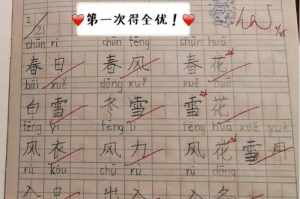 第一次得全优！
2/21
chūn rì chūn fēng chūn huā
春日 春风 春花
bái xuě dōng xuě xuě huā
白雪 冬雪 雪花
fēng yī fēng lì fēng huā xuě yuè
风衣 风力 风花雪月
rù kǒu chū rù rù
入口 出入 入冬